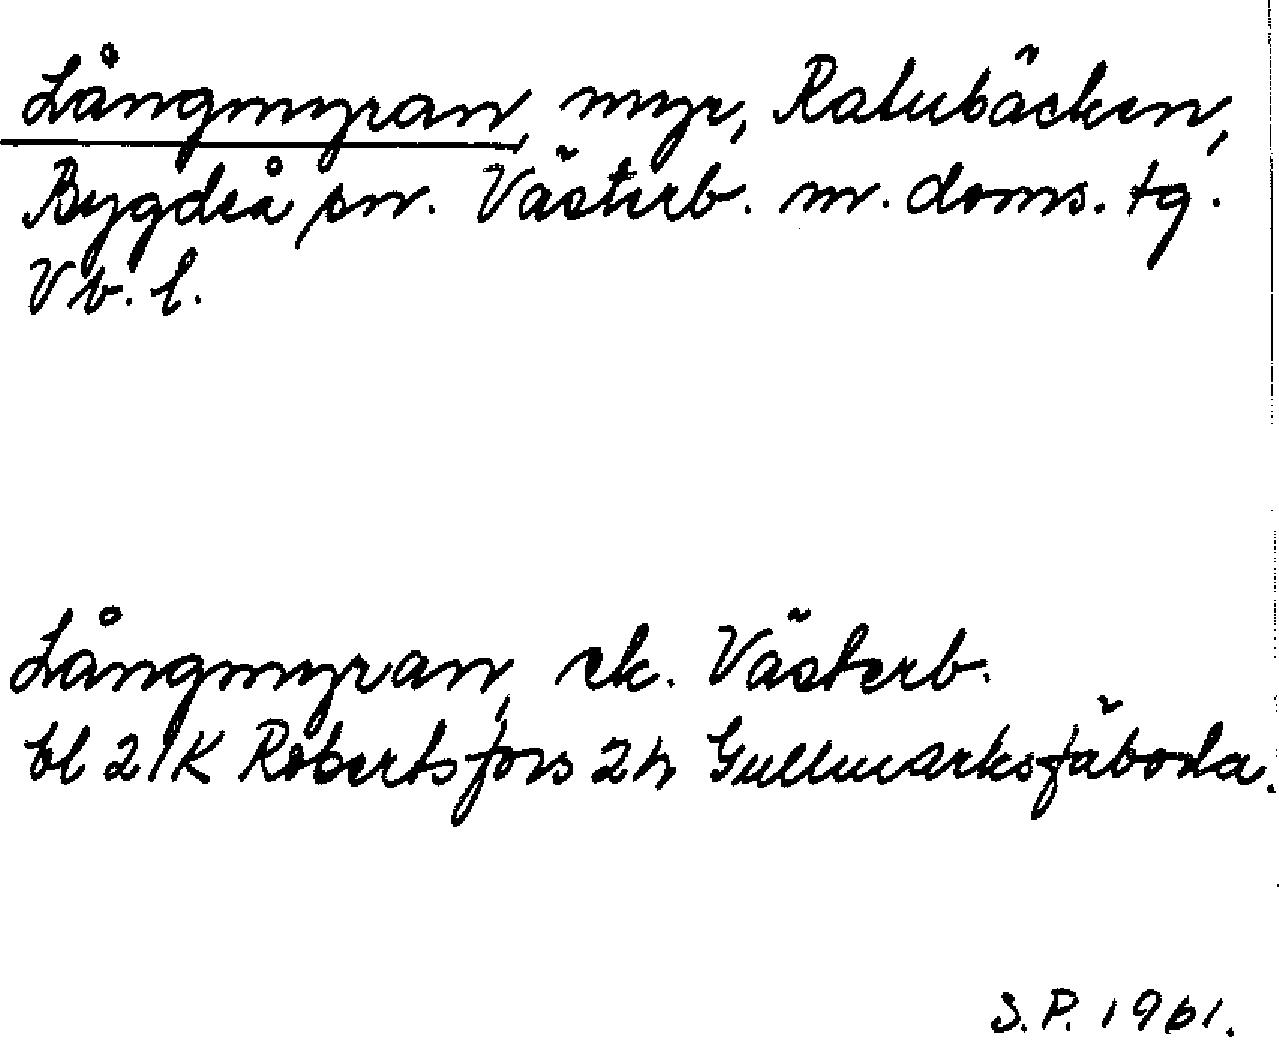 Långmyran, myr, Ratubäcken,
Bygdeå sn. Västerb. m. doms. tg.
Vb. l.
Långmyran, ek. Västerb.
bl 21K Robertsfors 2h Gullmarksfäboda.
S.P. 1961.